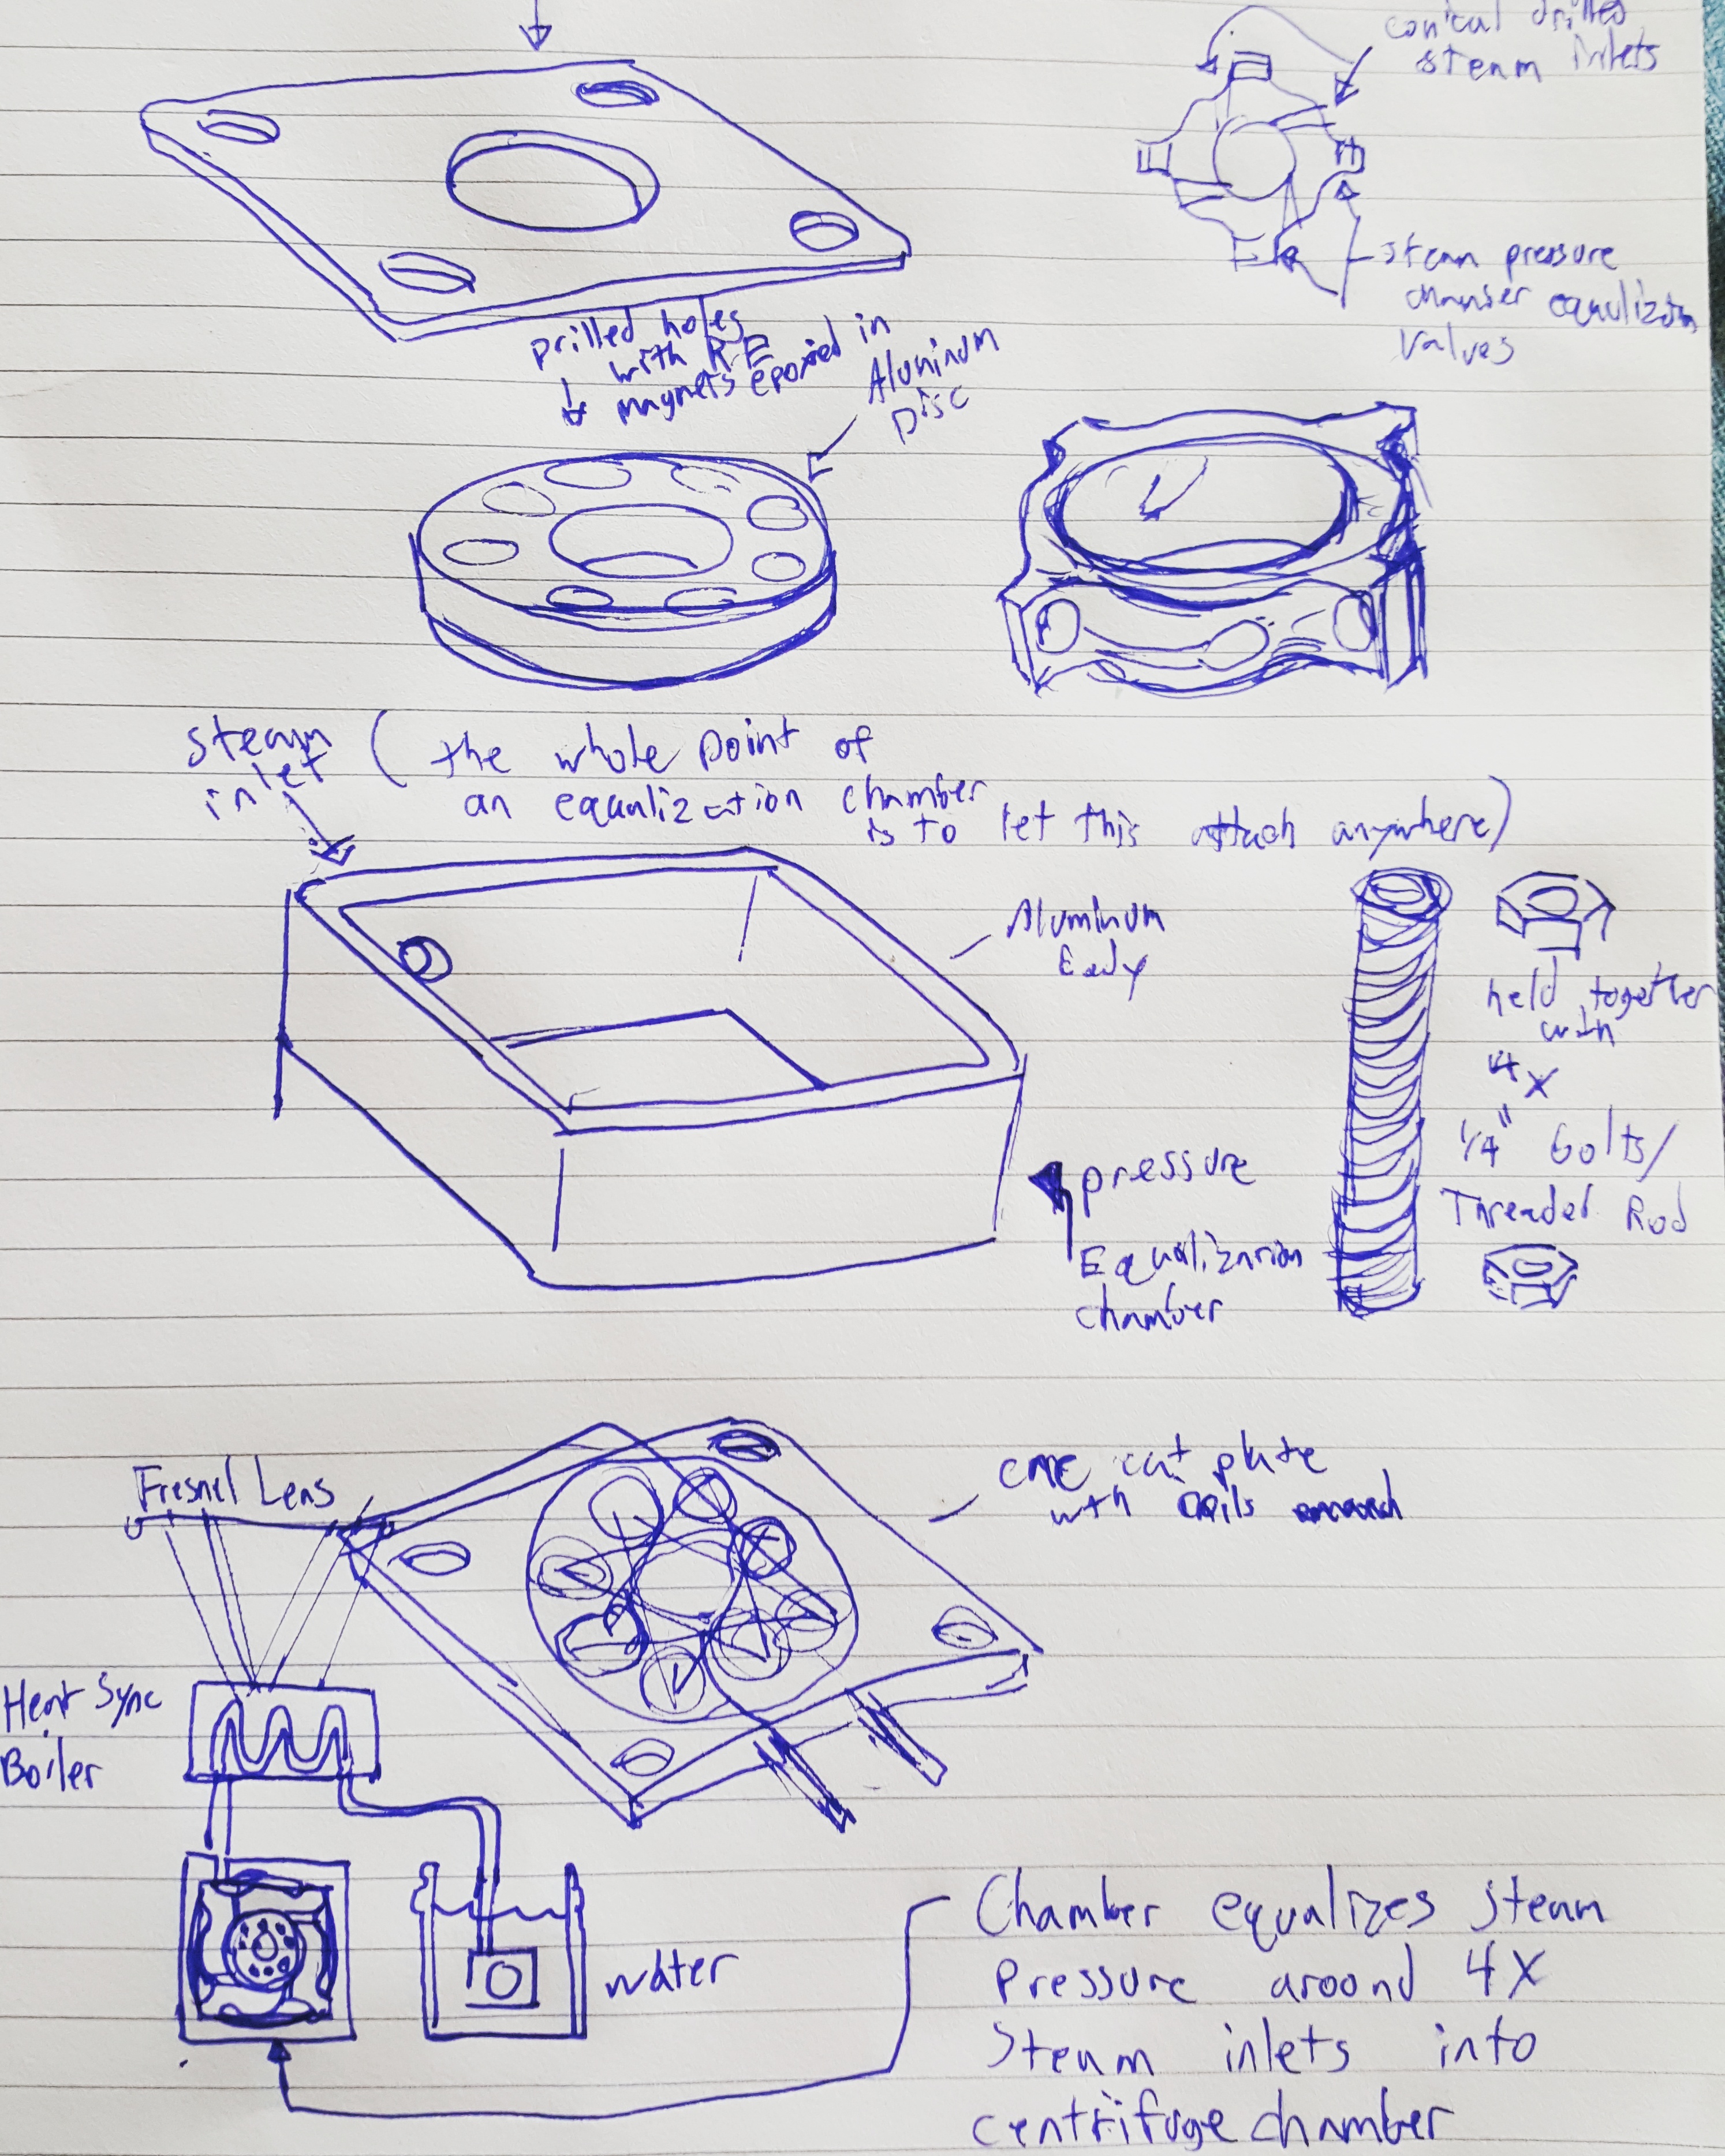 conical drilled
steam inlets
steam pressure
chamber equalization
valves
Drilled holes
with R.E
magnets epoxied in
Aluminum
Disc
steam
inlet
(the whole point of
an equalization chamber
is to let this attach anywhere)
Aluminum
Body
held together
with
4x
1/4" bolts/
Threaded Rod
pressure
Equalization
chamber
Fresnel Lens
CNC cut plate
with coils
Heat Sync
Boiler
water
Chamber equalizes steam
Pressure around 4X
Steam inlets into
centrifuge chamber